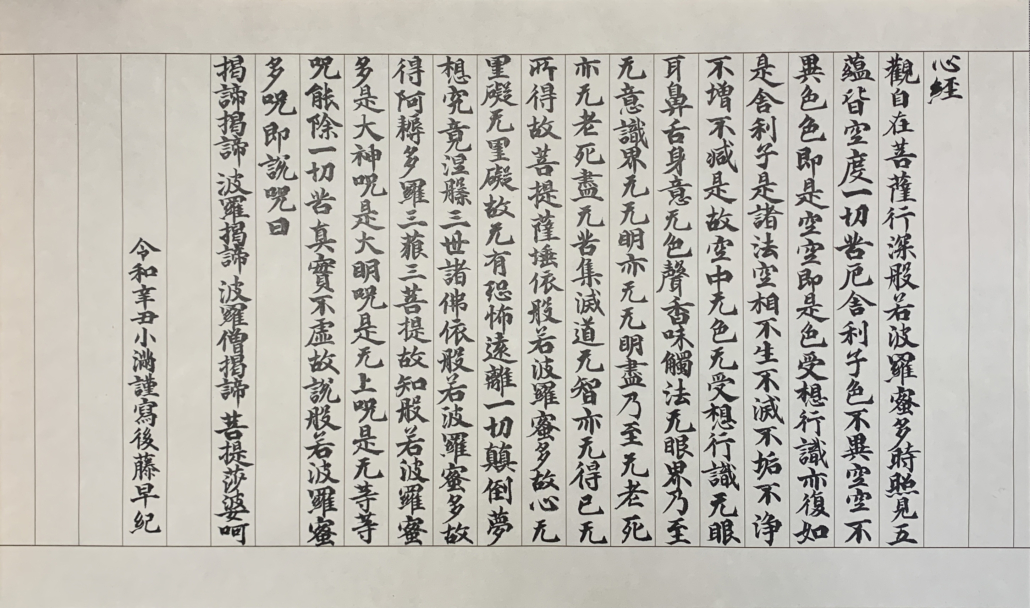 心経
觀自在菩薩行深般若波羅蜜多時照見五
蘊皆空度一切苦厄舎利子色不異空空不
異色色即是空空即是色受想行識亦復如
是舎利子是諸法空相不生不滅不垢不浄
不增不減是故空中无色无受想行識无眼
耳鼻舌身意无色聲香味觸法无眼界乃至
无意識界无无明亦无无明盡乃至无老死
亦无老死盡无苦集滅道无智亦无得已无
所得故菩提薩埵依般若波羅蜜多故心无
罣礙无罣礙故无有恐怖遠離一切顛倒夢
想究竟涅槃三世諸佛依般若波羅蜜多故
得阿耨多羅三藐三菩提故知般若波羅蜜
多是大神呪是大明呪是无上呪是无等等
呪能除一切苦真實不虚故說般若波羅蜜
多呪即說呪曰
揭諦揭諦 波羅揭諦 波羅僧揭諦 菩提莎婆呵
令和辛丑小満謹寫後藤早紀